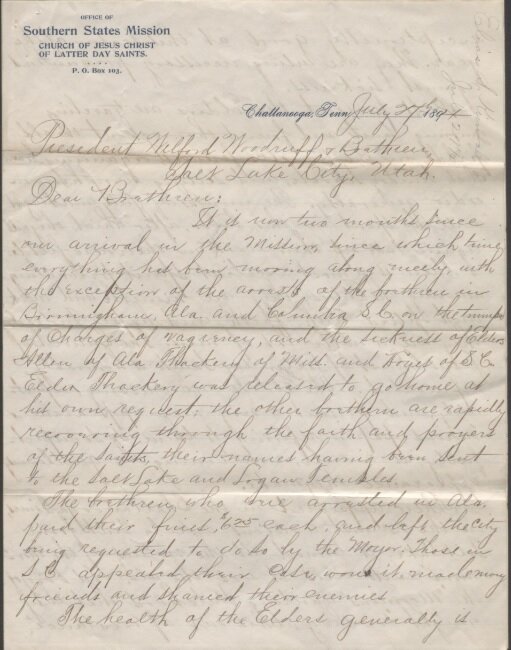 OFFICE OF
Southern States Mission
CHURCH OF JESUS CHRIST
OF LATTER DAY SAINTS.
P. O. Box 103.
Chattanooga, Tenn, July 27 1894
President Wilford Woodruff & Brethren,
Salt Lake City, Utah.
Dear Brethren:
It is now two months since
our arrival in the Mission, since which time
everything has been moving along nicely, with
the exception of the arrests of the brethren in
Birmingham, Ala. and Columbia S.C. on the
of charges of vagrency, and the sickness of Elders
Allen of Ala Thackery of Miss. and of S.C.
Elder Thackery was released to go home at
his own request; the other brethren are rapidly
recovering through the faith and prayers
of the saints, their names having been sent
to the Salt Lake and Logan Temples.
The brethren who were arrested in Ala.
paid their fines, each, and left the city
being requested to do so by the Mayor. Those in
S.C. appealed their case, won it, made many
friends and shamed their enemies
The health of the Elders generally is